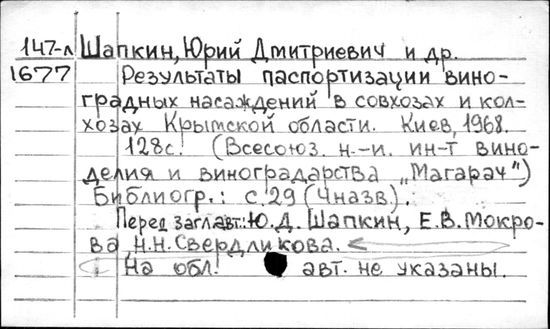 147-л Шапкин, Юрий Дмитриевич и др.
1677 Результаты паспортизации вино-
градных насаждений в совхозах и кол-
хозах Крымской области. Киев, 1968.
128с. (Всесоюз. н.-и. ин-т вино-
делия и виноградарства „Магарач")
Библиогр.: с.29 (4назв).
Перед заглавт.: Ю.Д. Шапкин, Е.В. Мокро-
ва, Н.Н. Свердликова.
На обл. авт. не указаны.